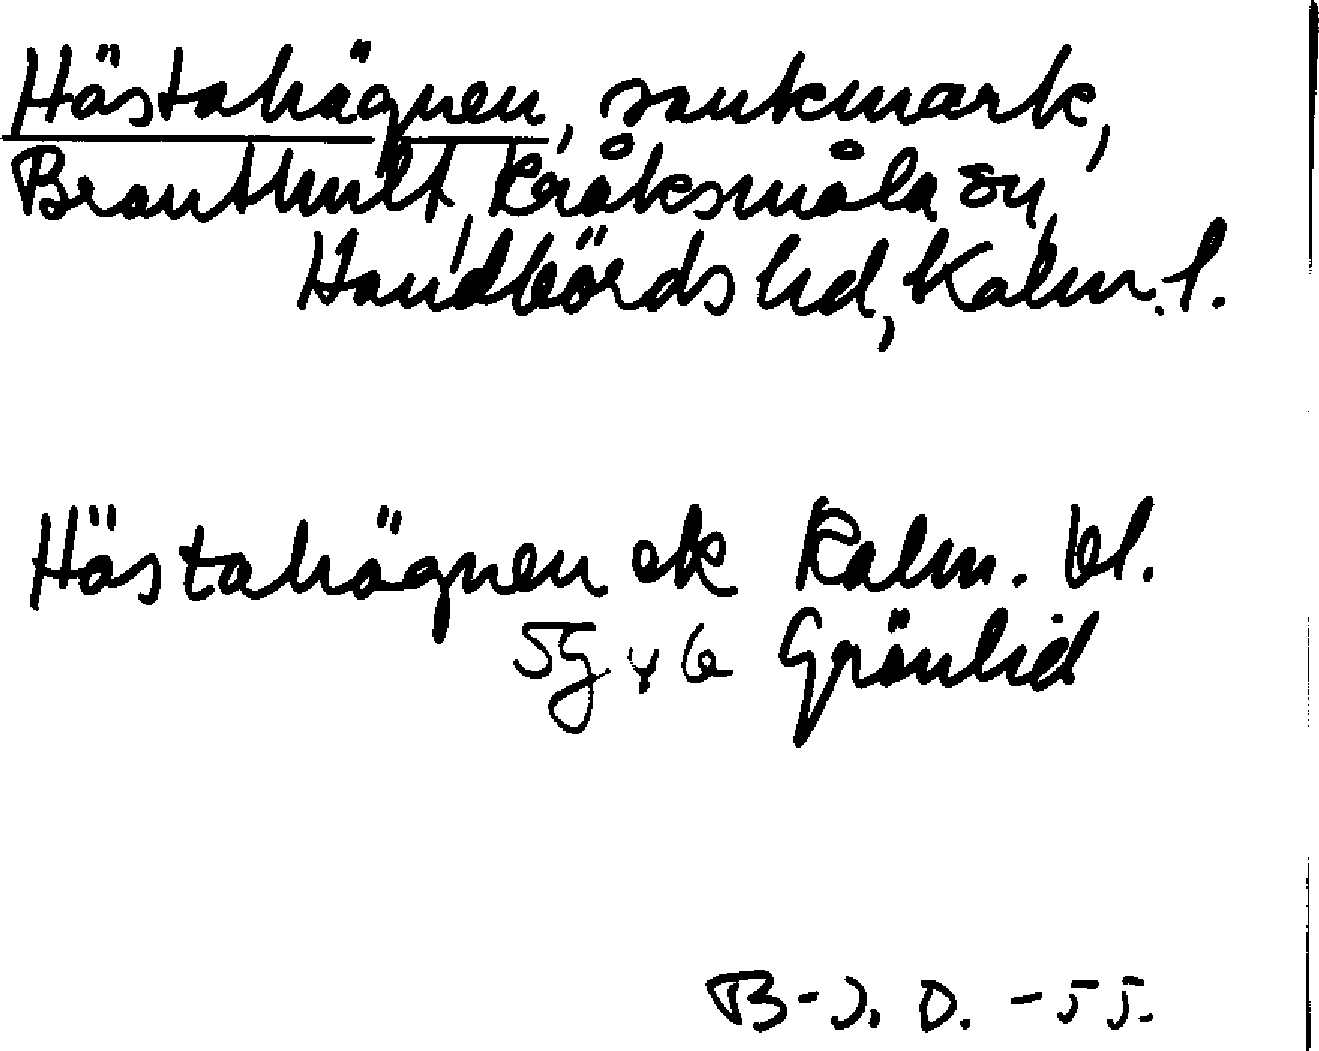 Hästahägnen, sankmark,
Branthult, Kråksmåla sn,
Handbörds hd, Kalm. l.
Hästahägnen ek Kalm. bl.
5g y 6 Grönlid
B-J. O. -55.